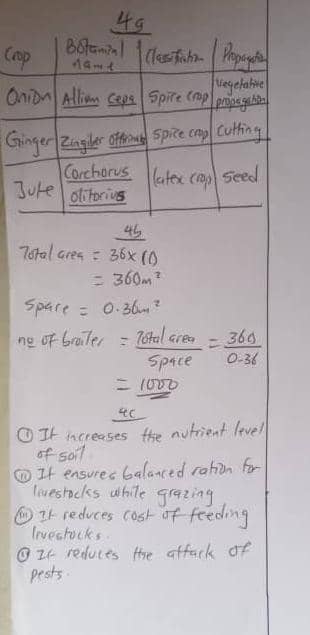 4a
Crop | Botanical name | Classification | Propagation
Onion | Allium Cepa | Spice crop | Vegetative propagation
Ginger | Zingiber officinale | Spice crop | Cutting
Jute | Corchorus olitorius | latex crop | Seed
4b
Total area = 36x10
= 360m²
Space = 0.36m²
no of broiler = Total area / Space = 360 / 0-36
= 1000
4c
(i) It increases the nutrient level
of soil
(ii) It ensures balanced ration for
livestocks while grazing
(iii) It reduces cost of feeding
livestocks.
(iv) It reduces the attack of
pests.